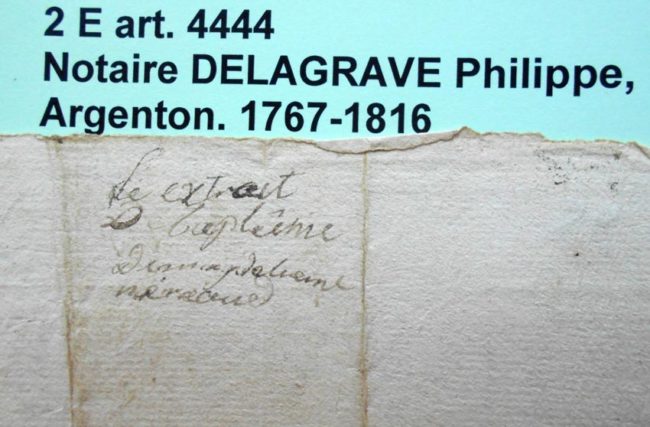 2 E art. 4444
Notaire DELAGRAVE Philippe,
Argenton. 1767-1816
Le extrait
De Baptême